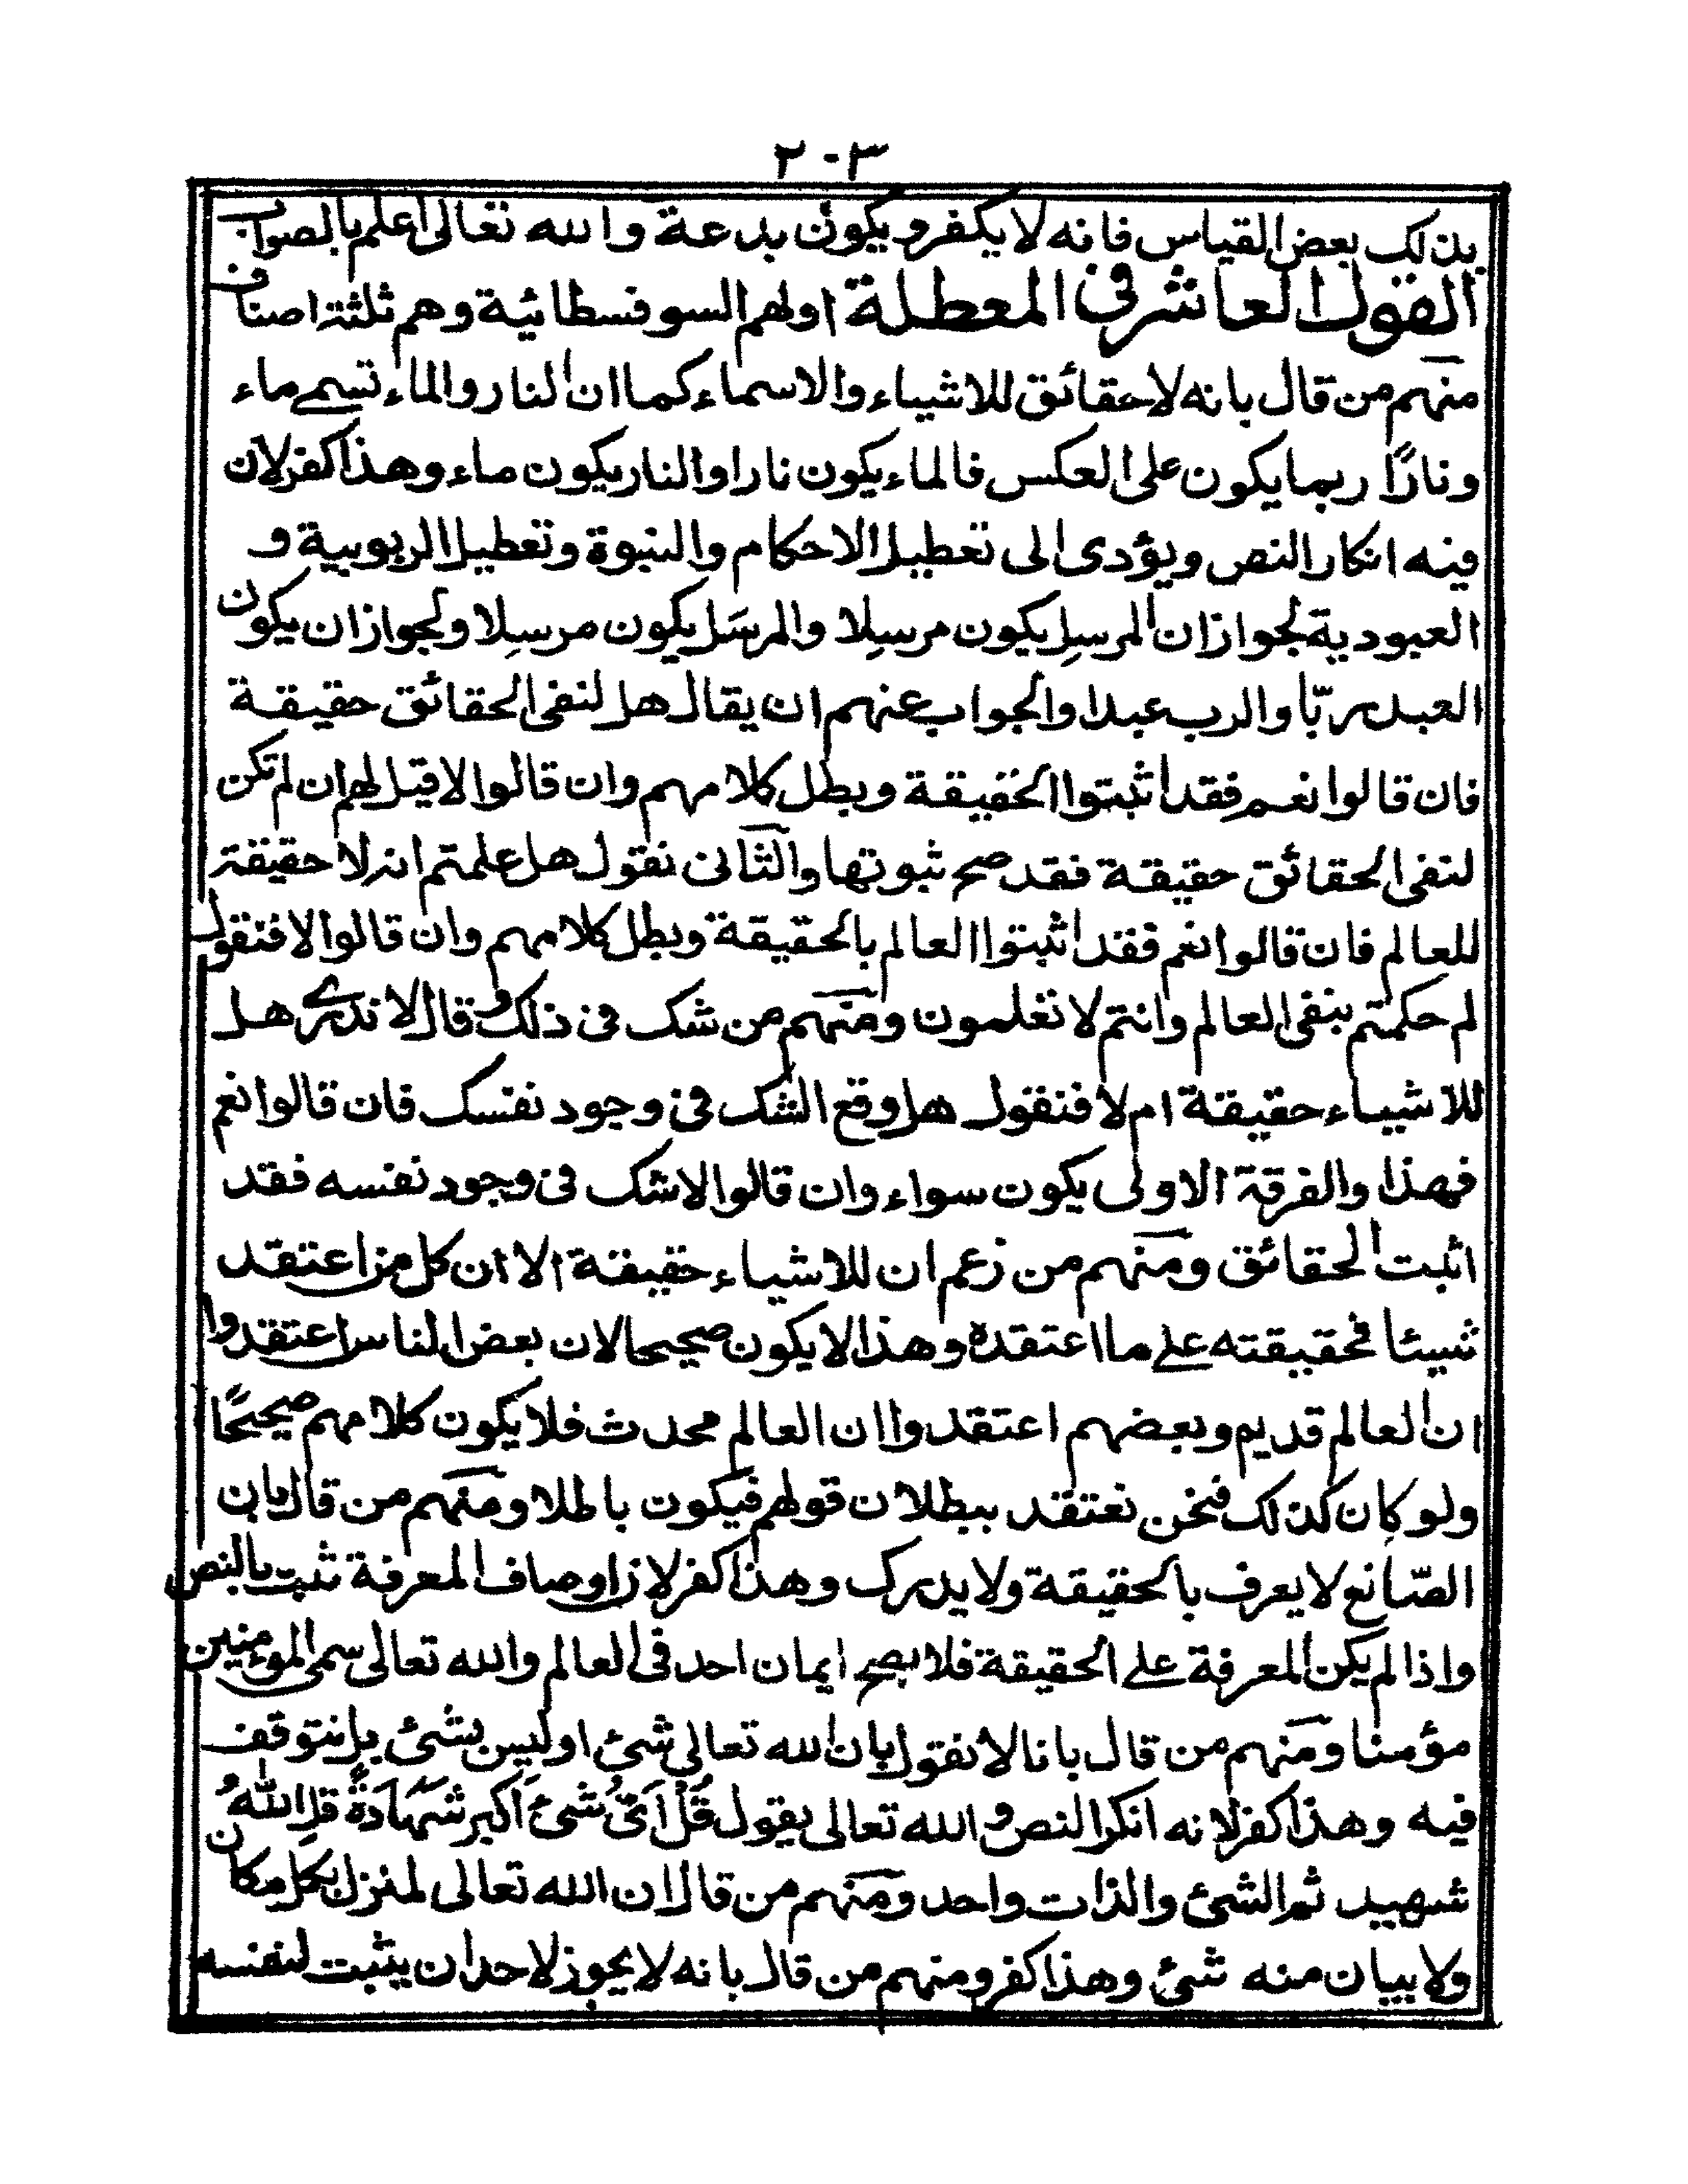 ٢٠٣
بذلك بعض القياس فانه لا يكفر و يكون بدعة والله تعالى اعلم بالصواب
القول العاشر فى المعطلة اولهم السوفسطائية وهم ثلثة اصناف
منهم من قال بانه لا حقائق للاشياء والاسماء كما ان النار والماء تسمے ماء
ونارًا ربما يكون على العكس فالماء يكون نارا والنار يكون ماء وهذا كفر لان
فيه انكار النص ويؤدى الى تعطيل الاحكام والنبوة وتعطيل الربوبية و
العبودية لجواز ان المرسِل يكون مرسِلا والمرسَل يكون مرسِلا ولجواز ان يكون
العبد ربّا والرب عبدا والجواب عنهم ان يقال هل لنفى الحقائق حقيقة
فان قالوا نعم فقد اثبتوا الحقيقة وبطل كلامهم وان قالوا لا قيل لهم ان لم تكن
لنفى الحقائق حقيقة فقد صح ثبوتها والثانى نقول هل علمتم انه لا حقيقة
للعالم فان قالوا نعم فقد اثبتوا العالم بالحقيقة وبطل كلامهم وان قالوا لا فنقول
لم حكمتم بنفى العالم وانتم لا تعلمون ومنهم من شك فى ذلك و قال لا ندرے هل
للاشياء حقيقة ام لا فنقول هل وقع الشك فى وجود نفسك فان قالوا نعم
فهذا والفرقة الاولى يكون سواء وان قالوا لا شك فى وجود نفسه فقد
اثبت الحقائق ومنهم من زعم ان للاشياء حقيقة الا ان كل من اعتقد
شيئا فحقيقته علے ما اعتقده وهذا لا يكون صحيحا لان بعض الناس اعتقدوا
ان العالم قديم وبعضهم اعتقدوا ان العالم محدث فلا يكون كلامهم صحيحًا
ولو كان كذلك فنحن نعتقد ببطلان قولهم فيكون باطلا ومنهم من قال بان
الصّانع لا يعرف بالحقيقة ولا يدرك وهذا كفر لان اوصاف المعرفة ثبت بالنص
واذا لم يكن المعرفة علے الحقيقة فلا يصح ايمان احد فى العالم والله تعالى سمى المؤمنين
مؤمنا ومنهم من قال بانا لا نقول بان الله تعالى شئ او ليس بشئ بل نتوقف
فيه وهذا كفر لانه انكر النص و الله تعالى يقول قُلْ اَىُّ شىْءٍ اَكبر شَهَادَةً قلِ اللهُ
شهيد ثم الشئ والذات واحد ومنهم من قال ان الله تعالى لمنزل بكل مكان
ولا بيان منه شئ وهذا كفر ومنهم من قال بانه لا يجوز لاحد ان يثبت لنفسه